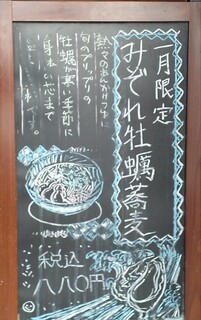 一月限定
みぞれ牡蠣蕎麦
熱々のあんかけつゆに
旬のプリップリの
牡蠣が寒い季節に
身も心も芯まで
税込
八八〇円